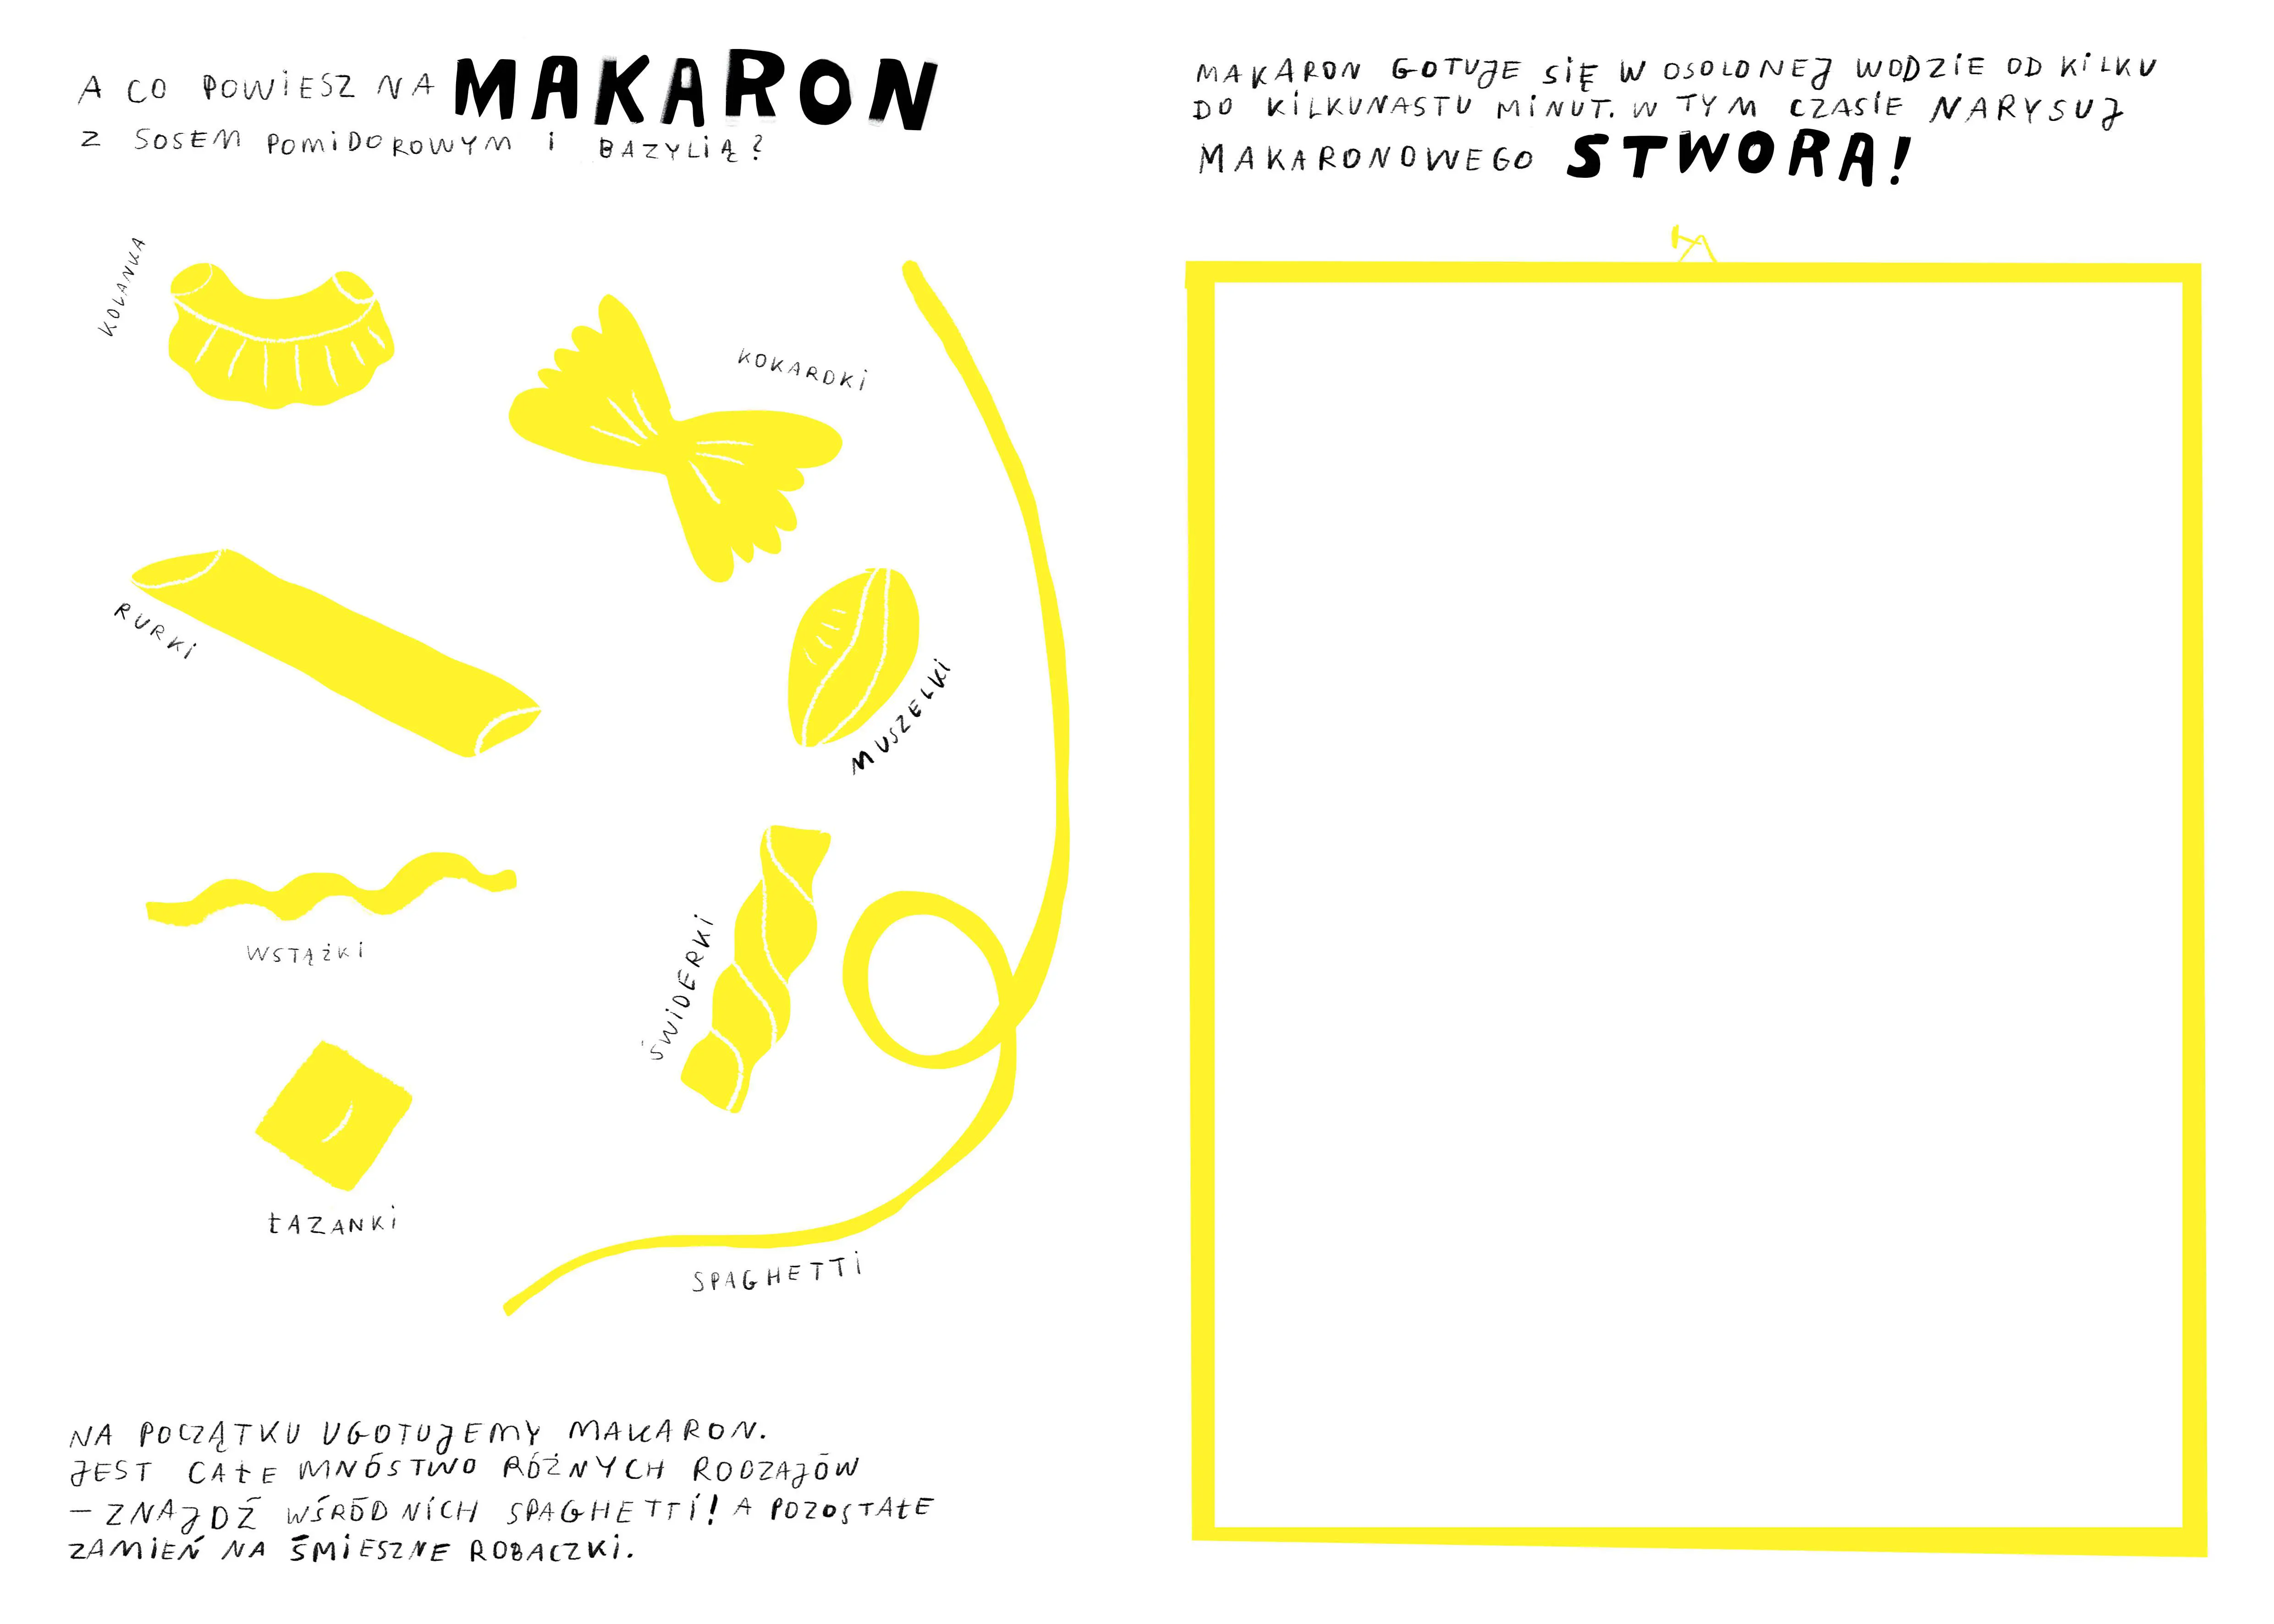 A CO POWIESZ NA MAKARON
Z SOSEM POMIDOROWYM I BAZYLIĄ?
KOLANKA
KOKARDKI
RURKI
MUSZELKI
WSTĄŻKI
ŚWIDERKI
ŁAZANKI
SPAGHETTI
NA POCZĄTKU UGOTUJEMY MAKARON.
JEST CAŁE MNÓSTWO RÓŻNYCH RODZAJÓW
– ZNAJDŹ WŚRÓD NICH SPAGHETTI! A POZOSTAŁE
ZAMIEŃ NA ŚMIESZNE ROBACZKI.
MAKARON GOTUJE SIĘ W OSOLONEJ WODZIE OD KILKU
DO KILKUNASTU MINUT. W TYM CZASIE NARYSUJ
MAKARONOWEGO STWORA!